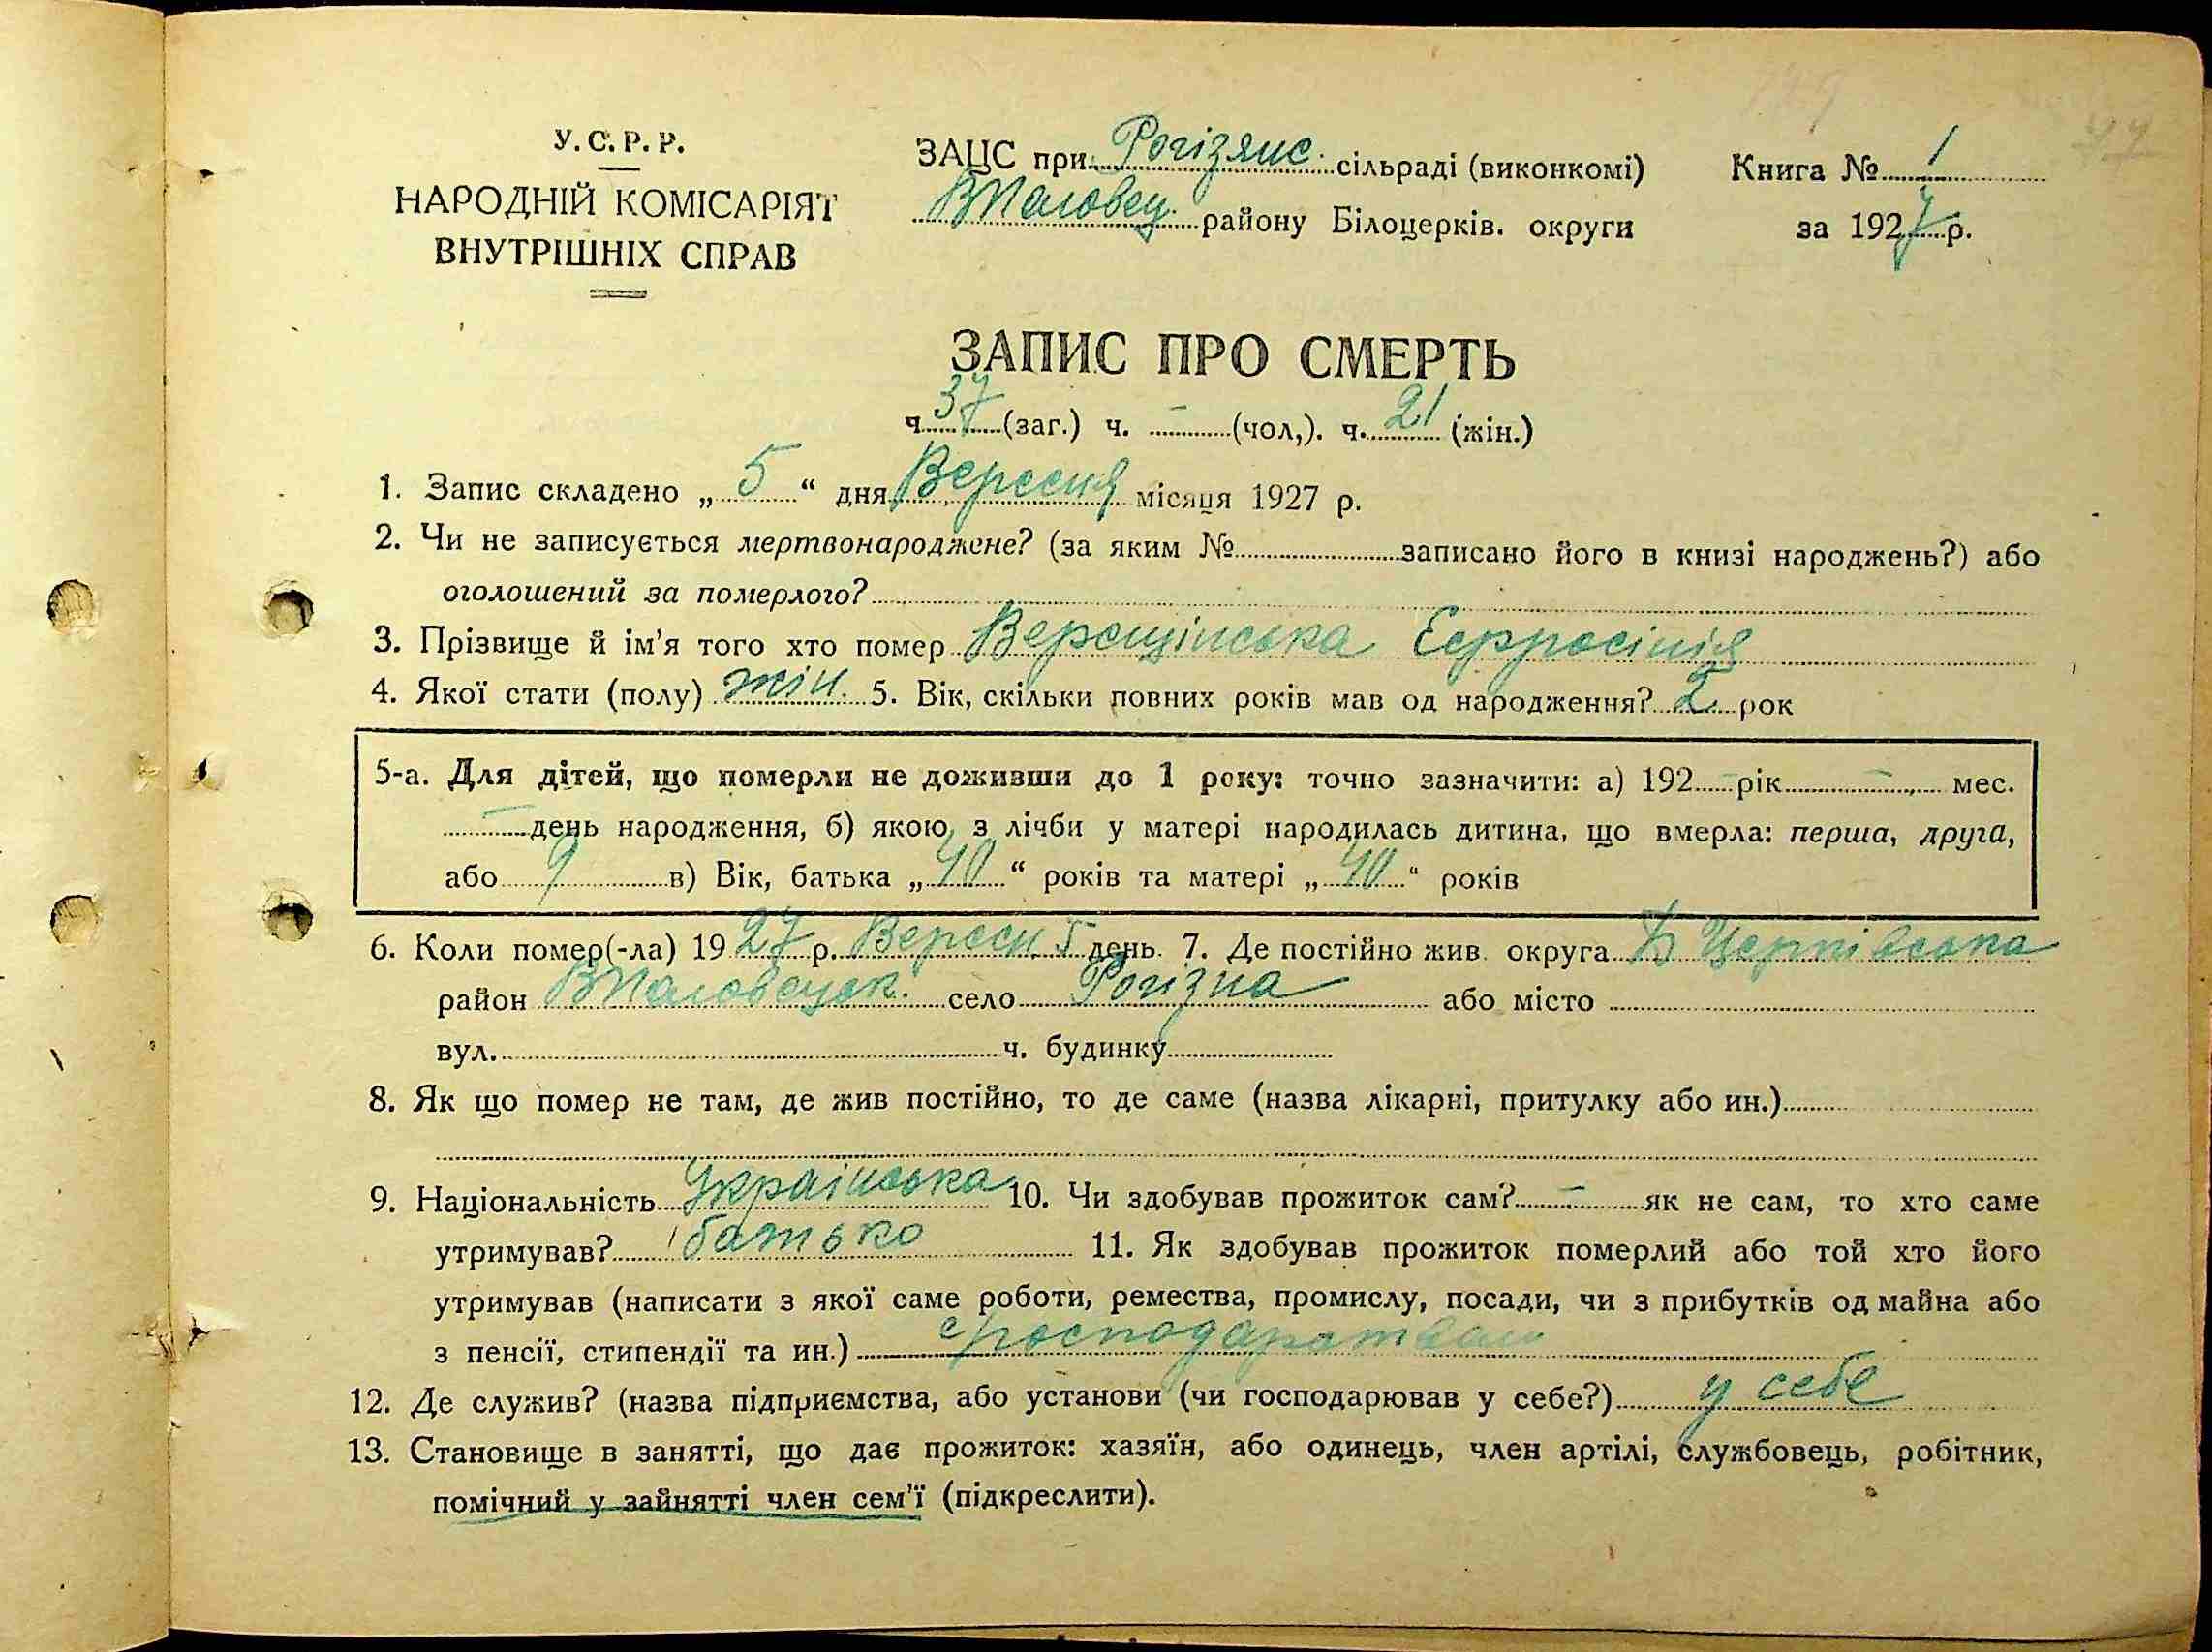 У. С. Р. Р.
НАРОДНІЙ КОМІСАРІЯТ
ВНУТРІШНІХ СПРАВ
ЗАЦС при Рогізянс. сільраді (виконкомі)
ВПоловец. району Білоцерків. округи
Книга № 1
за 1927 р.
ЗАПИС ПРО СМЕРТЬ
ч 37 (заг.) ч. – (чол,). ч. 21 (жін.)
1. Запис складено „ 5 “ дня Вересня місяця 1927 р.
2. Чи не записується мертвонароджене? (за яким № записано його в книзі народжень?) або
оголошений за померлого?
3. Прізвище й ім’я того хто помер Верещінська Єфросінія
4. Якої стати (полу) жін. 5. Вік, скільки повних років мав од народження? рок
5-а. Для дітей, що померли не доживши до 1 року: точно зазначити: а) 192 – рік – мес.
– день народження, б) якою з лічби у матері народилась дитина, що вмерла: перша, друга,
або 9 в) Вік, батька „ 40 “ років та матері „ 40 “ років
6. Коли помер(-ла) 19 27 р. Вересн. 5 день. 7. Де постійно жив. округа Б Церківська
район ВПоловецьк. село Рогізна або місто
вул. ч. будинку
8. Як що помер не там, де жив постійно, то де саме (назва лікарні, притулку або ин.)
9. Національність Українська 10. Чи здобував прожиток сам? – як не сам, то хто саме
утримував? батько 11. Як здобував прожиток померлий або той хто його
утримував (написати з якої саме роботи, ремества, промислу, посади, чи з прибутків од майна або
з пенсії, стипендії та ин.)
12. Де служив? (назва підприємства, або установи (чи господарював у себе?) у себе
13. Становище в занятті, що дає прожиток: хазяїн, або одинець, член артілі, службовець, робітник,
помічний у зайнятті член сем’ї (підкреслити).